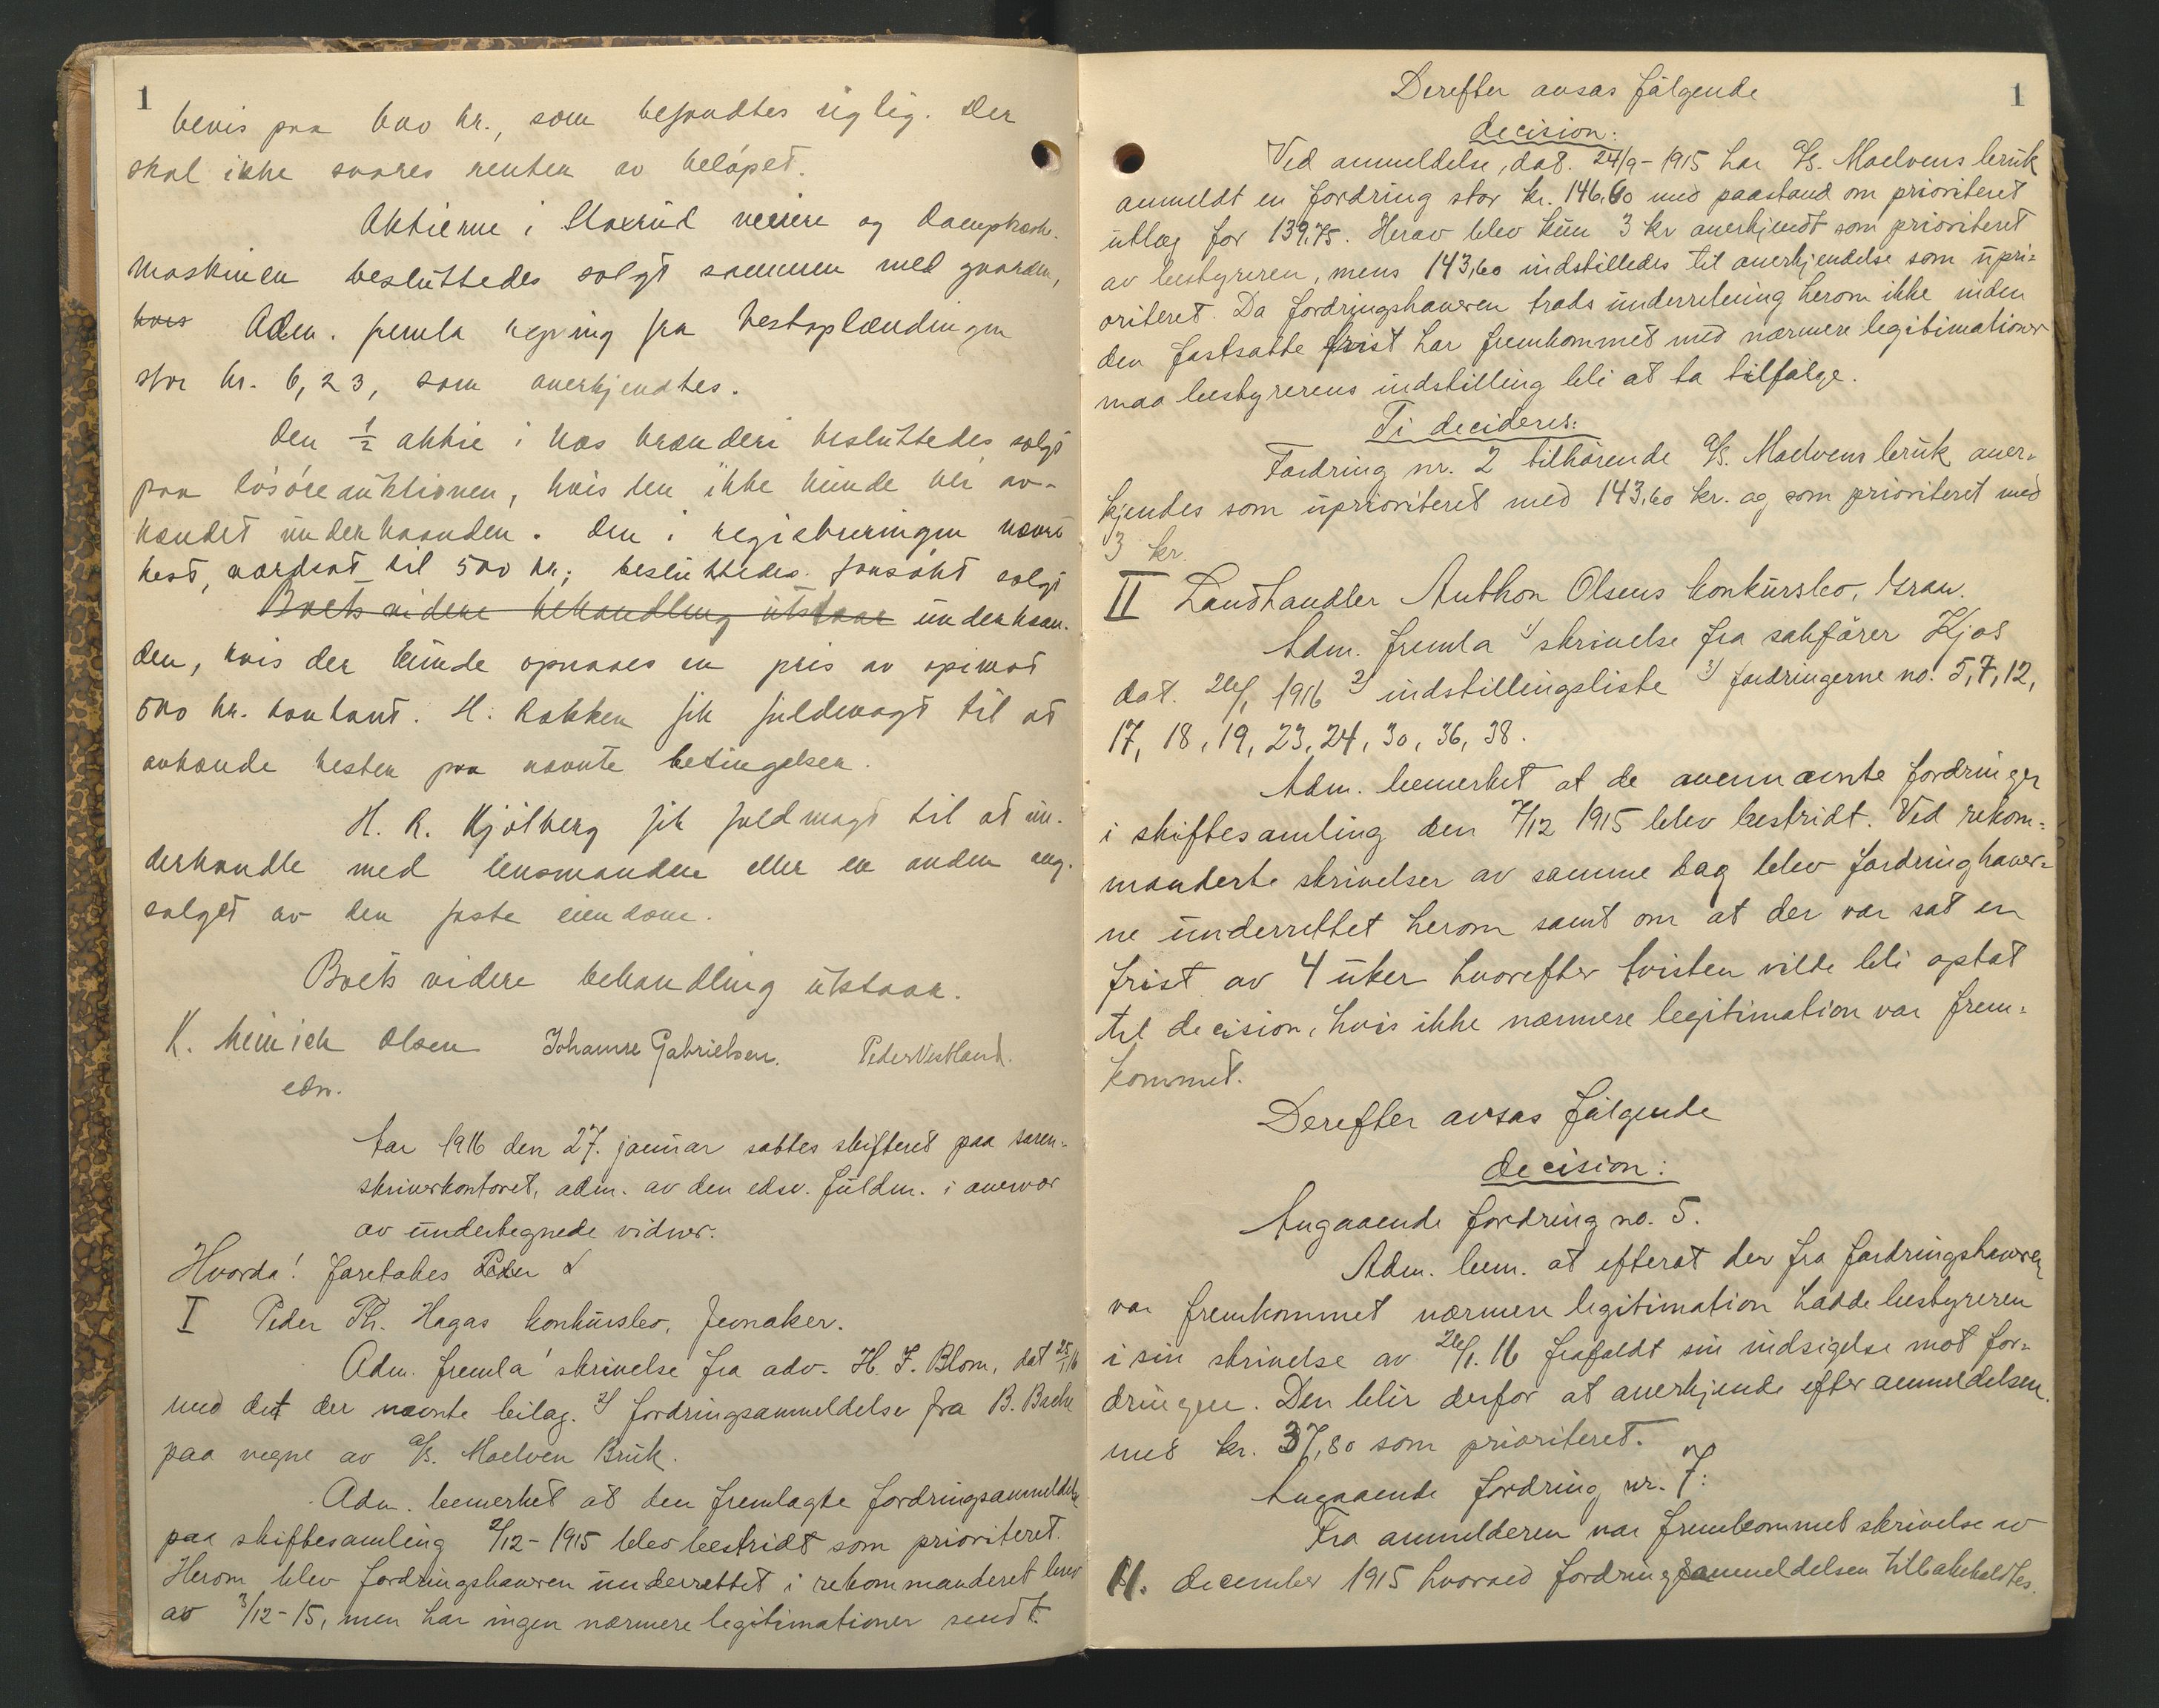 1
bevis paa 600 kr., som befandtes riglig. Der
skal ikke svares renter av beløpet.
Aktierne i Staxrud meieri og damptræske-
maskinen besluttedes solgt sammen med gaarden,
hvis Adm. fremla regning fra Vestoplændingen
stor kr. 6,23, som anerkjendtes.
Den ½ aktie i Næs brænderi besluttedes solgt
paa løsøreauktionen, hvis den ikke kunde bli av-
hændet underhaanden. Den i registreringen nævnte
hest, værdsat til 500 kr; besluttedes forsøkt solgt
Boets videre behandling utstaar underhaan-
den, hvis der kunde opnaaes en pris av opimot
500 kr. kontant. H. Rækken fik fuldmagt til at
avhænde hesten paa nævnte betingelser.
H. R. Kjølberg fik fuldmagt til at un-
derhandle med lensmanden eller en anden ang.
salget av den faste eiendom.
Boets videre behandling utstaar.
K. Heinrich Olsen Johanne Gabrielsen. Peder Vestland.
edv.
Aar 1916 den 27. januar sattes skifteret paa soren-
skriverkontoret, adm. av den edsv. fuldm. i overvær
av undertegnede vidner.
Hvorda! Foretokes Peder
I Peder Th. Hagas konkursbo, Jevnaker.
Adm. fremla 1 skrivelse fra adv. H. F. Blom, dat 25/1 16
med det der nævnte bilag. 2) fordringsanmeldelse fra B. Bache
paa vegne av A/S. Moelven Bruk.
Adm. bemerket at den fremlagte fordringsanmeldelse
paa skiftesamling 2/12-1915 blev bestridt som prioriteret.
Herom blev fordringshaveren underrettet i rekommanderet brev
av 3/12-15, men har ingen nærmere legitimationer sendt.
1
Derefter avsas følgende
decision:
Ved anmeldelse, dat. 24/9-1915 har A/S. Moelvens bruk
anmeldt en fordring stor kr. 146,60 med paastand om prioriteret
utlæg for 139,75. Herav blev kun 3 kr anerkjendt som prioriteret
av bestyreren, mens 143,60 indstilledes til anerkjendelse som upri-
oriteret. Da fordringshaveren trods underretning herom ikke inden
den fastsatte frist har fremkommet med nærmere legitimationer
maa bestyrerens indstilling bli at ta tilfølge.
Ti decideres:
Fordring nr. 2 tilhørende A/S. Moelvens bruk aner-
kjendes som uprioriteret med 143,60 kr. og som prioriteret med
3 kr.
II Landhandler Anthon Olsens konkursbo, Gran.
Adm. fremla 1) skrivelse fra sakfører Kjos
dat. 26/1 1916 2) indstillingsliste 3) fordringerne no. 5, 7, 12,
17, 18, 19, 23, 24, 30, 36, 38.
Adm. bemerket at de ovennævnte fordringer
i skiftesamling den 7/12 1915 blev bestridt. Ved rekom-
manderte skrivelser av samme dag blev fordringhaver-
ne underrettet herom samt om at der var sat en
frist av 4 uker hvorefter tvisten vilde bli optat
til decision, hvis ikke nærmere legitimation var frem-
kommet.
Derefter avsas følgende
decision:
Angaaende fordring no. 5.
Adm. bem. at efterat der fra fordringshaveren
var fremkommet nærmere legitimation hadde bestyreren
i sin skrivelse av 26/1. 16 frafaldt sin indsigelse mot for-
dringen. Den blir derfor at anerkjende efter anmeldelsen
med kr. 37,80 som prioriteret.
Angaaende fordring nr. 7:
Fra anmelderen var fremkommet skrivelse av
11. december 1915 hvorved fordringsanmeldelsen tilbakekaldtes.